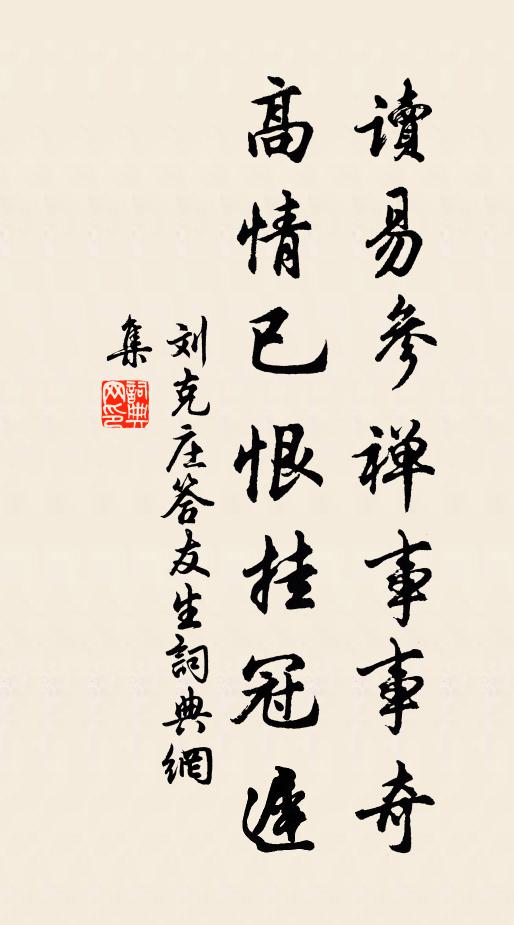 讀易參禅事事奇
高情已恨挂冠遲
刘克庄答友生詞典網
集
詞典
网印